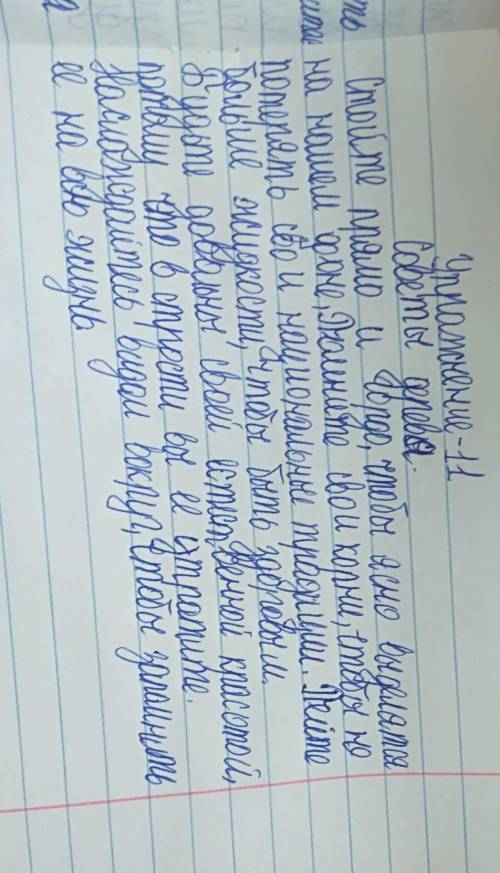 Упражнение-11
Советы древа.
Стойте прямо и гордо, чтобы ясно выделятся
на нашем фоне, Помните свои корни, чтобы не
потерять свои национальные традиции. Пейте
больше жидкости, чтобы быть здоровым.
Будьте довольны своей естественной красотой,
потому что в старости вы ее утратите.
Наслождайтесь видом вокруг, чтобы запомнить
ее на всю жизнь